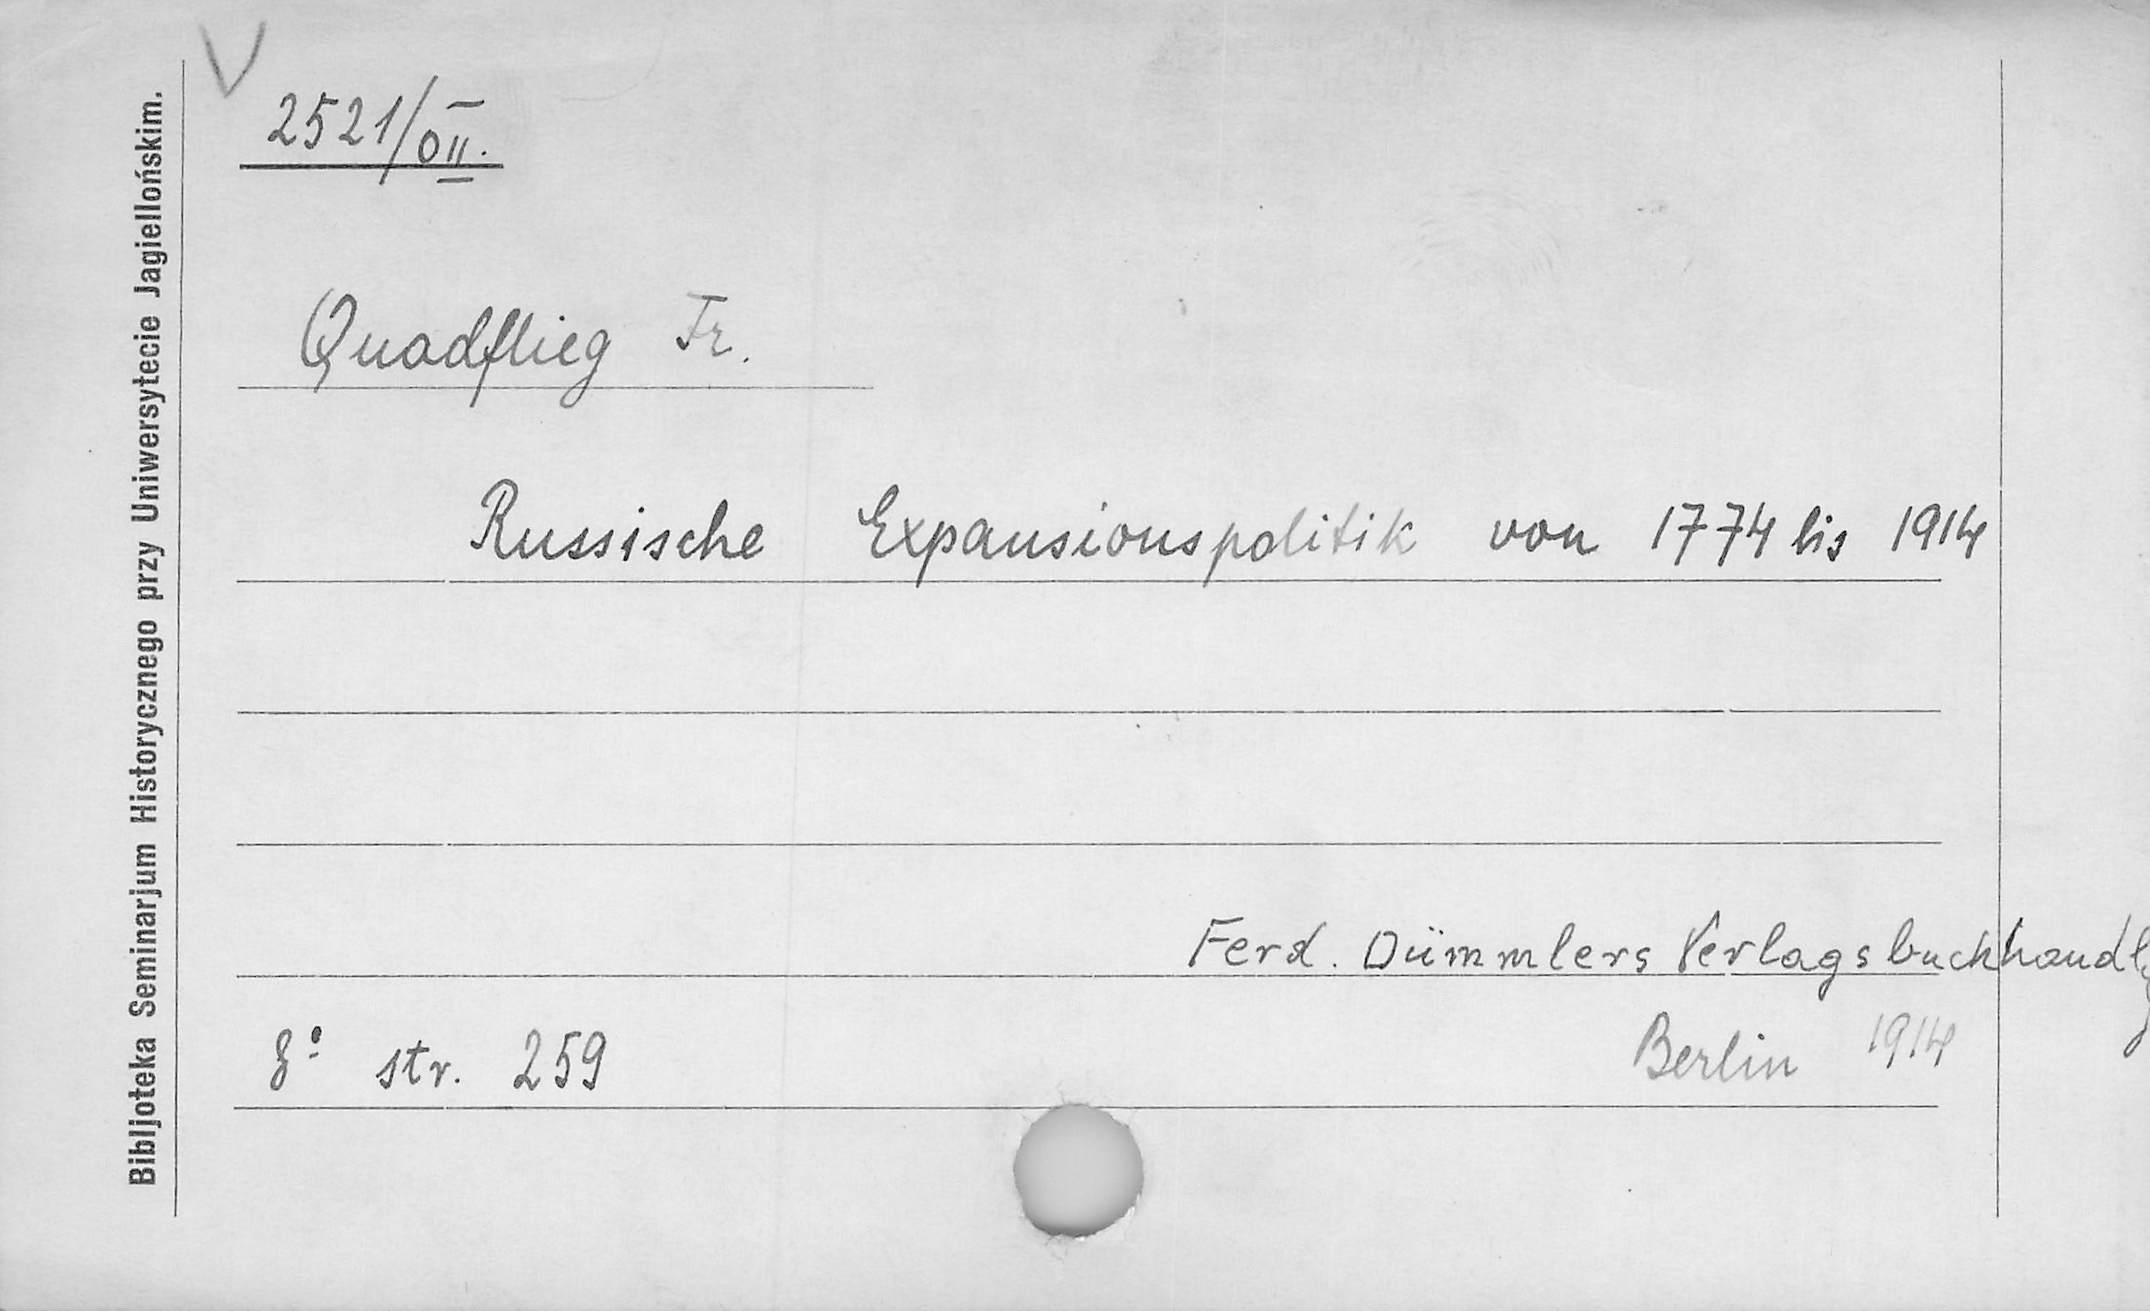 V
2521/0II.
Quadflieg Fr.
Russische Expansionspolitik von 1774 bis 1914
Ferd. Dümmlers Verlagsbuchhandlg
8° str. 259
Berlin 1914
Bibljoteka Seminarjum Historycznego przy Uniwersytecie Jagiellońskim.